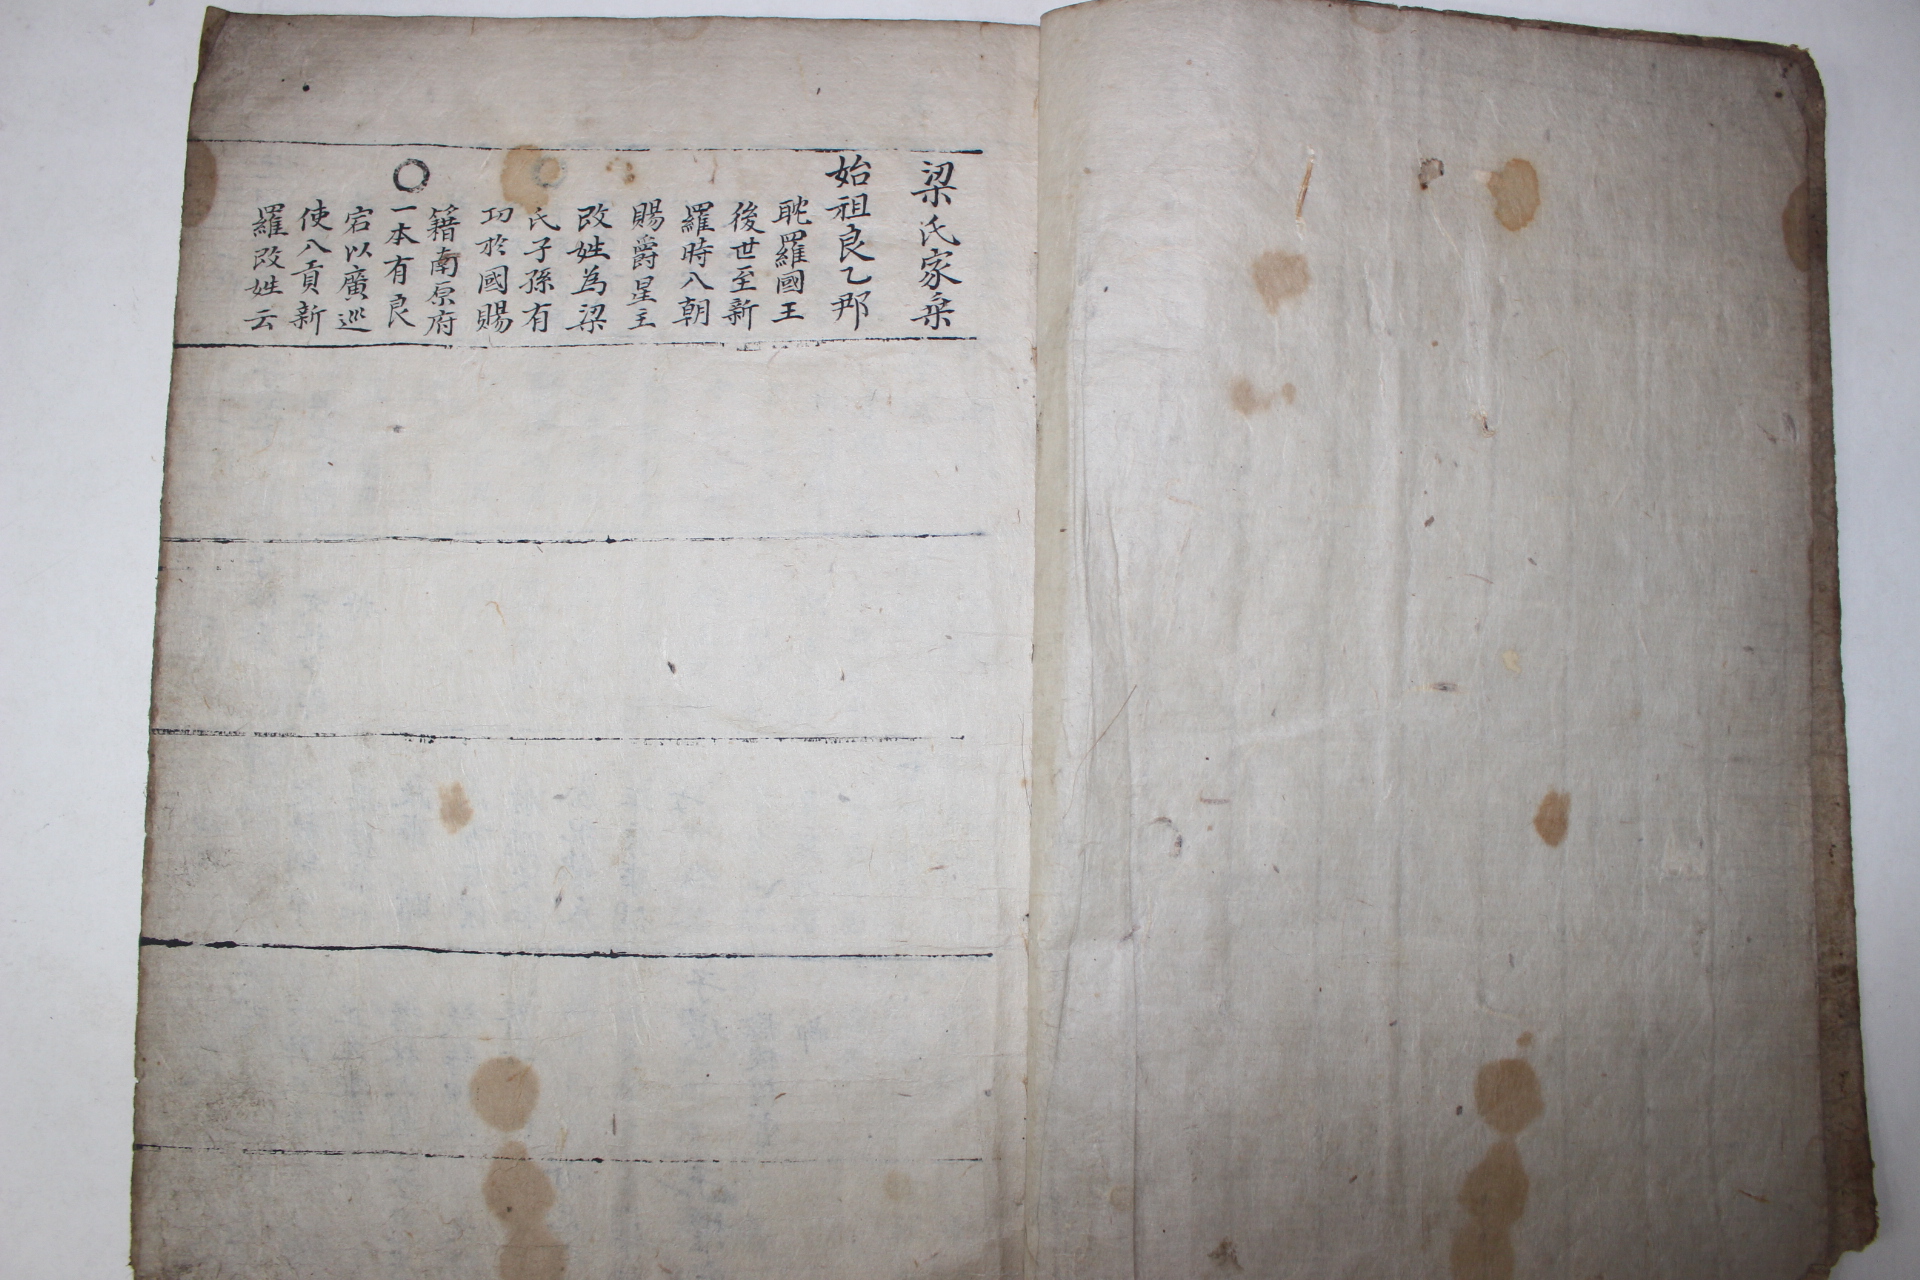 梁氏家乗
始祖良乙那
耽羅國王
後世至新
羅時入朝
賜爵星主
改姓為梁
氏子孫有
功於國賜
籍南原府
○一本有良
宕以廣巡
使入貢新
羅改姓云